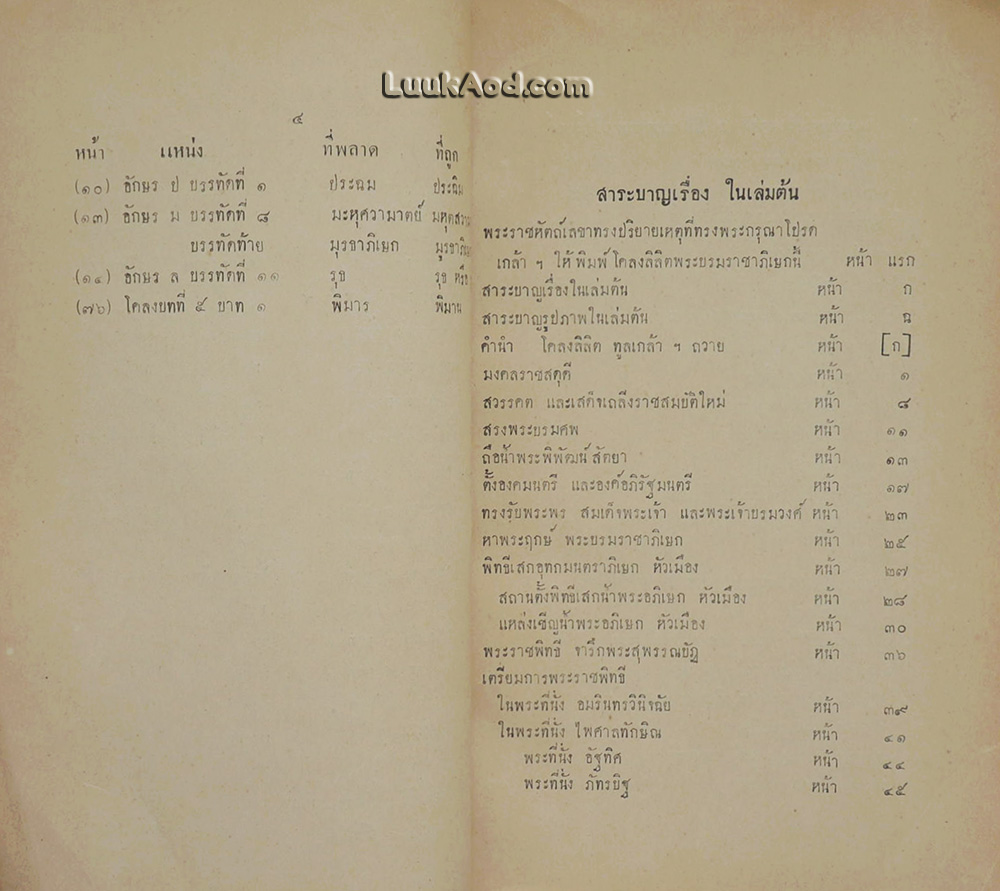 LuukAod.com
๔
หน้า แหน่ง ที่พลาด ที่ถูก
(๑๐) อักษร ป บรรทัดที่ ๑ ประฉม ประฉิม
(๑๓) อักษร ม บรรทัดที่ ๘ มะหุศวามาตย์
บรรทัดท้าย มุรธาภิเษก
(๑๔) อักษร ล บรรทัดที่ ๑๑ รุธ รุธ หรือ
(๗๖) โคลงบทที่ ๕ บาท ๑ พิมาร พิมาน
สาระบาญเรื่อง ในเล่มต้น
พระราชหัตถ์เลขาทรงปริยายเหตุที่ทรงพระกรุณาโปรด
เกล้า ฯ ให้พิมพ์โคลงลิลิตพระบรมราชาภิเษกนี้ หน้า แรก
สาระบาญเรื่องในเล่มต้น หน้า ก
สาระบาญรูปภาพในเล่มต้น หน้า ฉ
คำนำ โคลงลิลิต ทูลเกล้า ฯ ถวาย หน้า [ก]
มงคลราชสดุดี หน้า ๑
สวรรคต และเสด็จเถลิงราชสมบัติใหม่ หน้า ๘
สรงพระบรมศพ หน้า ๑๑
ถือน้ำพระพิพัฒน์สัตยา หน้า ๑๓
ตั้งองคมนตรี และองค์อภิรัฐมนตรี หน้า ๑๗
ทรงรับพระพร สมเด็จพระเจ้า และพระเจ้าบรมวงศ์ หน้า ๒๓
หาพระฤกษ์ พระบรมราชาภิเษก หน้า ๒๕
พิทธีเสกอุทกมนตราภิเษก หัวเมือง หน้า ๒๗
สถานตั้งพิทธีเสกน้ำพระอภิเษก หัวเมือง หน้า ๒๘
แหล่งเชิญน้ำพระอภิเษก หัวเมือง หน้า ๓๐
พระราชพิทธี จารึกพระสุพรรณบัฏ หน้า ๓๖
เตรียมการพระราชพิทธี
ในพระที่นั่ง อมรินทรวินิจฉัย หน้า ๓๙
ในพระที่นั่ง ไพศาลทักษิณ หน้า ๔๑
พระที่นั่ง อัฐทิศ หน้า ๔๔
พระที่นั่ง ภัทรบิฐ หน้า ๔๕